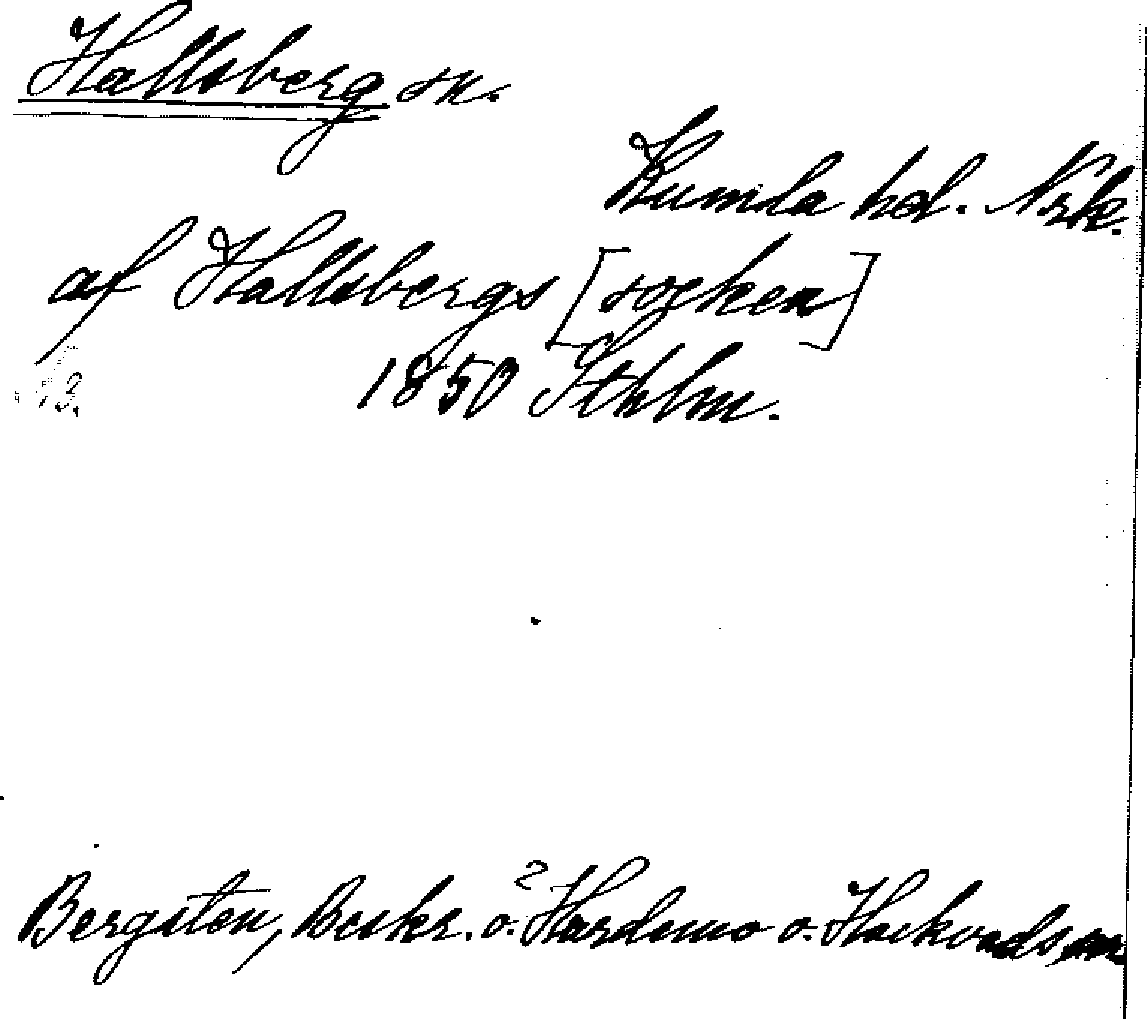 Hallsberg sn.
Kumla hd. Nrk.
af Hallsbergs [socken]
1850 Sthlm.
Bergsten, Beskr. ö. Hardemo o. Hackvads